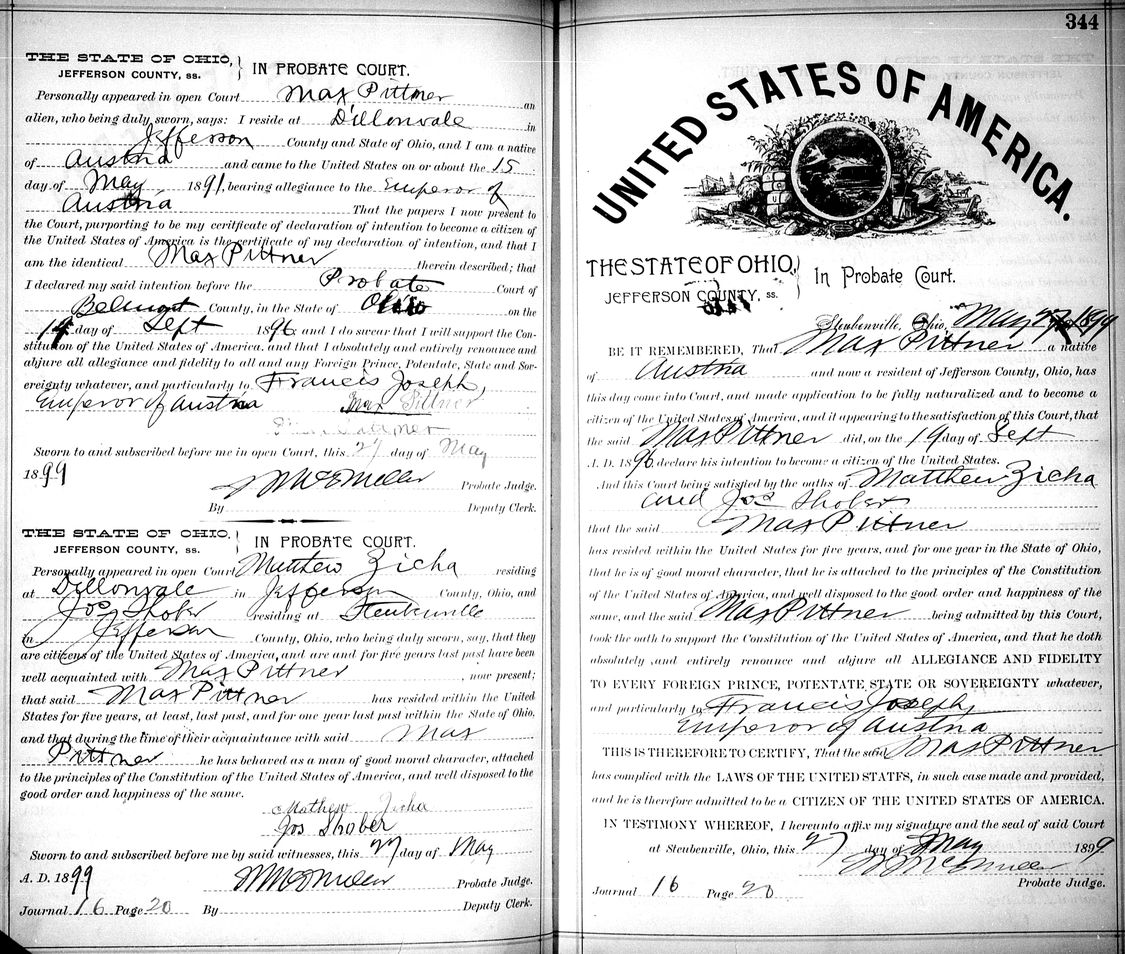 THE STATE OF OHIO, } IN PROBATE COURT.
JEFFERSON COUNTY, ss.
Personally appeared in open Court Max Pittner an
alien, who being duly sworn, says: I reside at Dillonvale in
Jefferson County and State of Ohio, and I am a native
of Austria and came to the United States on or about the 15
day of May 1891, bearing allegiance to the Emperor of
Austria That the papers I now present to
the Court, purporting to be my certificate of declaration of intention to become a citizen of
the United States of America is the certificate of my declaration of intention, and that I
am the identical Max Pittner therein described; that
I declared my said intention before the Probate Court of
Belmont County, in the State of Ohio on the
19 day of Sept 1896 and I do swear that I will support the Con-
stitution of the United States of America, and that I absolutely and entirely renounce and
abjure all allegiance and fidelity to all and any Foreign Prince, Potentate, State and Sov-
ereignty whatever, and particularly to Francis Joseph,
Emperor of Austria Max Pittner
Sworn to and subscribed before me in open Court, this 27 day of May
1899 Probate Judge.
By Deputy Clerk.
THE STATE OF OHIO, } IN PROBATE COURT.
JEFFERSON COUNTY, ss.
Personally appeared in open Court Matthew Zicha residing
at Dillonvale in Jefferson County, Ohio, and
Jos Shober residing at Steubenville
in Jefferson County, Ohio, who being duly sworn, say, that they
are citizens of the United States of America, and are and for five years last past have been
well acquainted with Max Pittner, now present;
that said Max Pittner has resided within the United
States for five years, at least, last past, and for one year last past within the State of Ohio,
and that during the time of their acquaintance with said Max
Pittner he has behaved as a man of good moral character, attached
to the principles of the Constitution of the United States of America, and well disposed to the
good order and happiness of the same.
Mathew Zicha
Jos Shober
Sworn to and subscribed before me by said witnesses, this 27 day of May
A. D. 1899 Probate Judge.
Journal 16 Page 20 By Deputy Clerk.
344
UNITED STATES OF AMERICA.
THE STATE OF OHIO, } In Probate Court.
JEFFERSON COUNTY, ss.
Steubenville, Ohio, May 27 1899
BE IT REMEMBERED, That Max Pittner a native
of Austria and now a resident of Jefferson County, Ohio, has
this day come into Court, and made application to be fully naturalized and to become a
citizen of the United States of America, and it appearing to the satisfaction of this Court, that
the said Max Pittner did, on the 19 day of Sept
A. D. 1896 declare his intention to become a citizen of the United States.
And this Court being satisfied by the oaths of Matthew Zicha
and Jos Shober
that the said Max Pittner
has resided within the United States for five years, and for one year in the State of Ohio,
that he is of good moral character, that he is attached to the principles of the Constitution
of the United States of America, and well disposed to the good order and happiness of the
same, and the said Max Pittner being admitted by this Court,
took the oath to support the Constitution of the United States of America, and that he doth
absolutely and entirely renounce and abjure all ALLEGIANCE AND FIDELITY
TO EVERY FOREIGN PRINCE, POTENTATE STATE OR SOVEREIGNTY whatever,
and particularly to Francis Joseph,
Emperor of Austria
THIS IS THEREFORE TO CERTIFY, That the said Max Pittner
has complied with the LAWS OF THE UNITED STATES, in such case made and provided,
and he is therefore admitted to be a CITIZEN OF THE UNITED STATES OF AMERICA.
IN TESTIMONY WHEREOF, I hereunto affix my signature and the seal of said Court
at Steubenville, Ohio, this 27 day of May 1899
Probate Judge.
Journal 16 Page 20